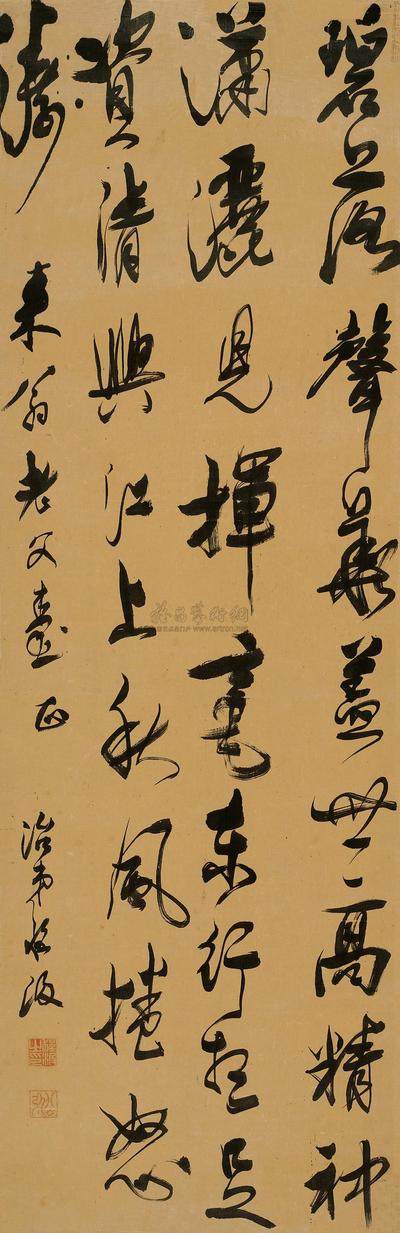 碧落聲華蓋世高精神
瀟灑見揮毫東行想足
資清興江上秋風捲怒
濤
翁老父臺正
治弟程浚
雅昌藝術網
www.artron.net